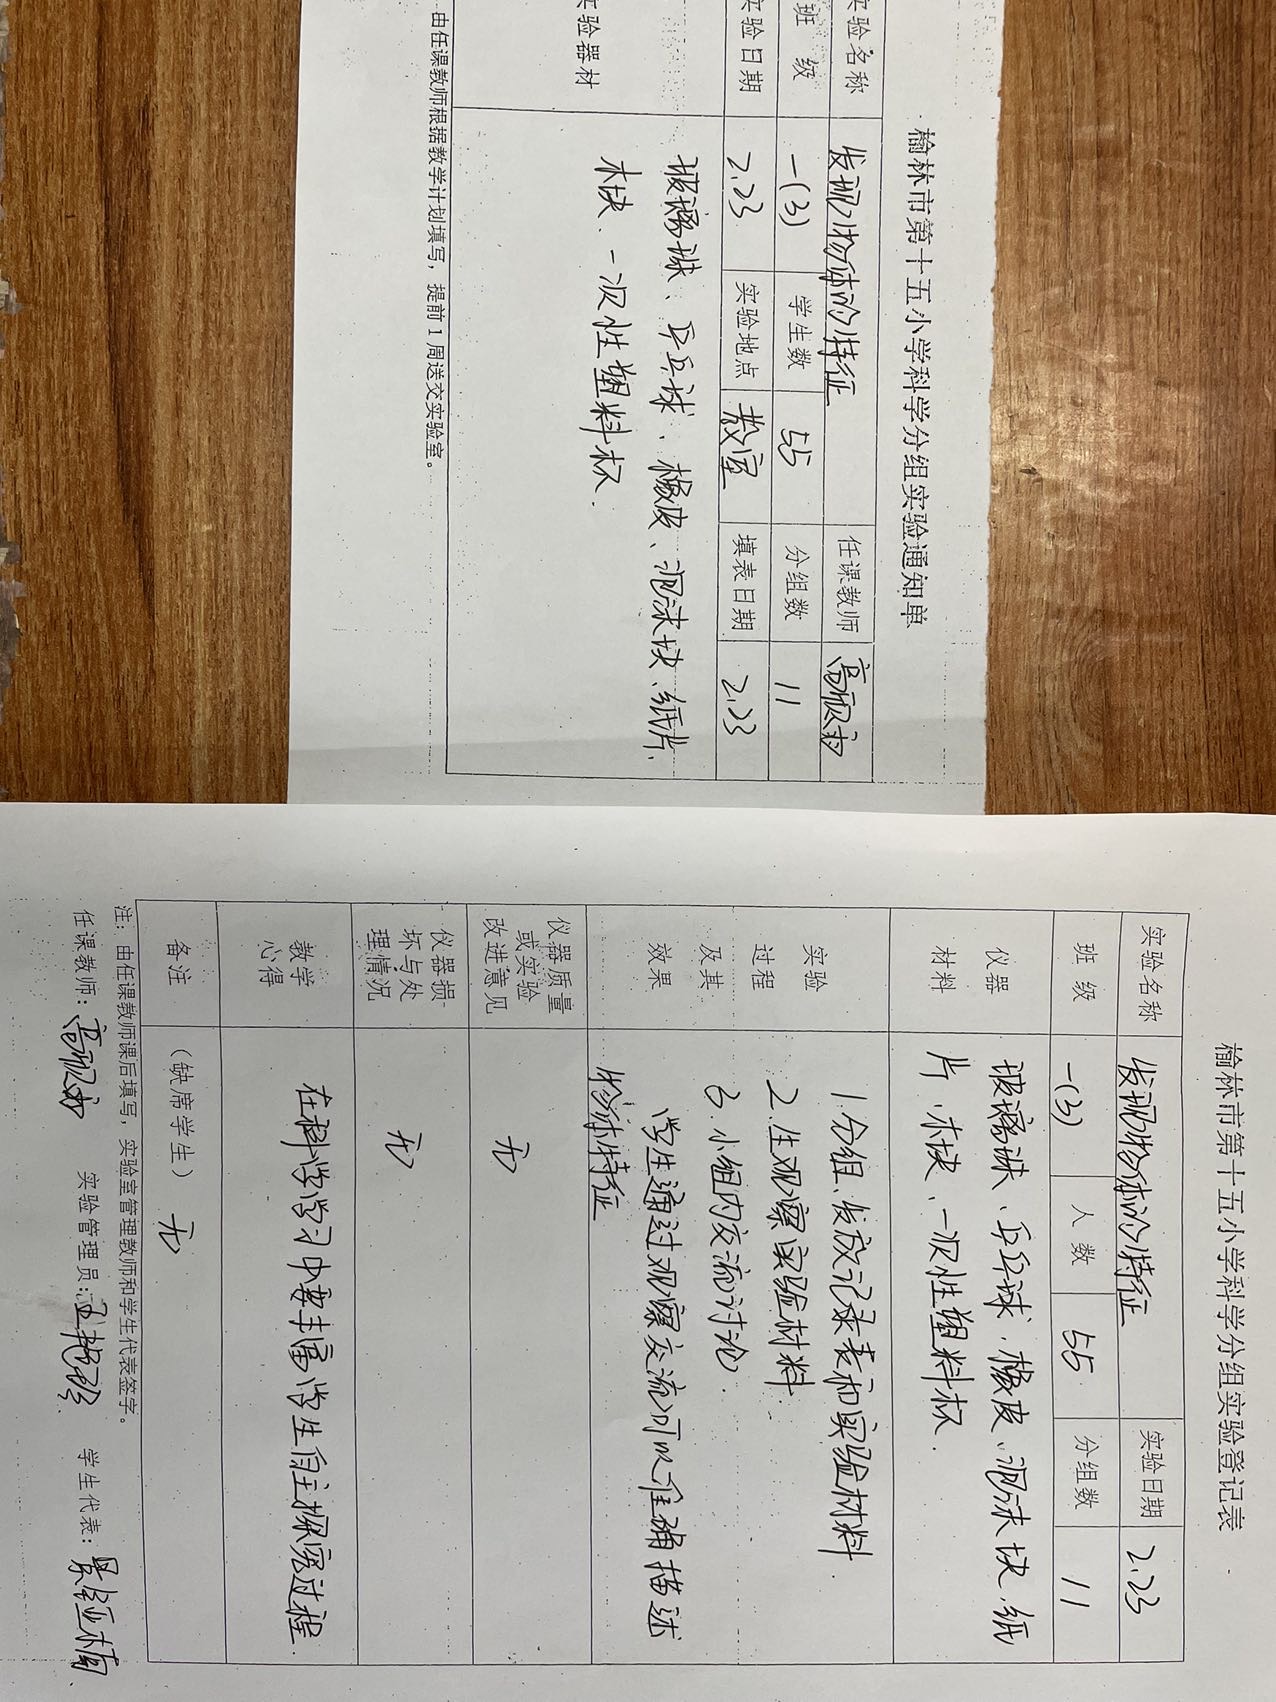 榆林市第十五小学科学分组实验通知单
实验名称 发现物体的特征 任课教师
班 级 一(3) 学生数 55 分组数 11
实验日期 2.23 实验地点 教室 填表日期 2.23
实验器材 玻璃珠、乒乓球、橡皮、泡沫块、纸片、
木块、一次性塑料杯.
由任课教师根据教学计划填写，提前1周送交实验室。
榆林市第十五小学科学分组实验登记表
实验名称 发现物体的特征 实验日期 2.23
班 级 一(3) 人 数 55 分组数 11
仪器 玻璃珠、乒乓球、橡皮、泡沫块、纸
材料 片、木块、一次性塑料杯.
实验 1.分组、发放记录表和实验材料
过程 2.生观察实验材料
及其 3.小组内交流讨论.
效果 学生通过观察交流可以准确描述
物体特征
仪器质量
或实验 无
改进意见
仪器损
坏与处 无
理情况
教学 在科学学习中要丰富学生自主探究过程.
心得
备注 (缺席学生) 无
注：由任课教师课后填写，实验室管理教师和学生代表签字。
任课教师： 实验管理员： 学生代表：